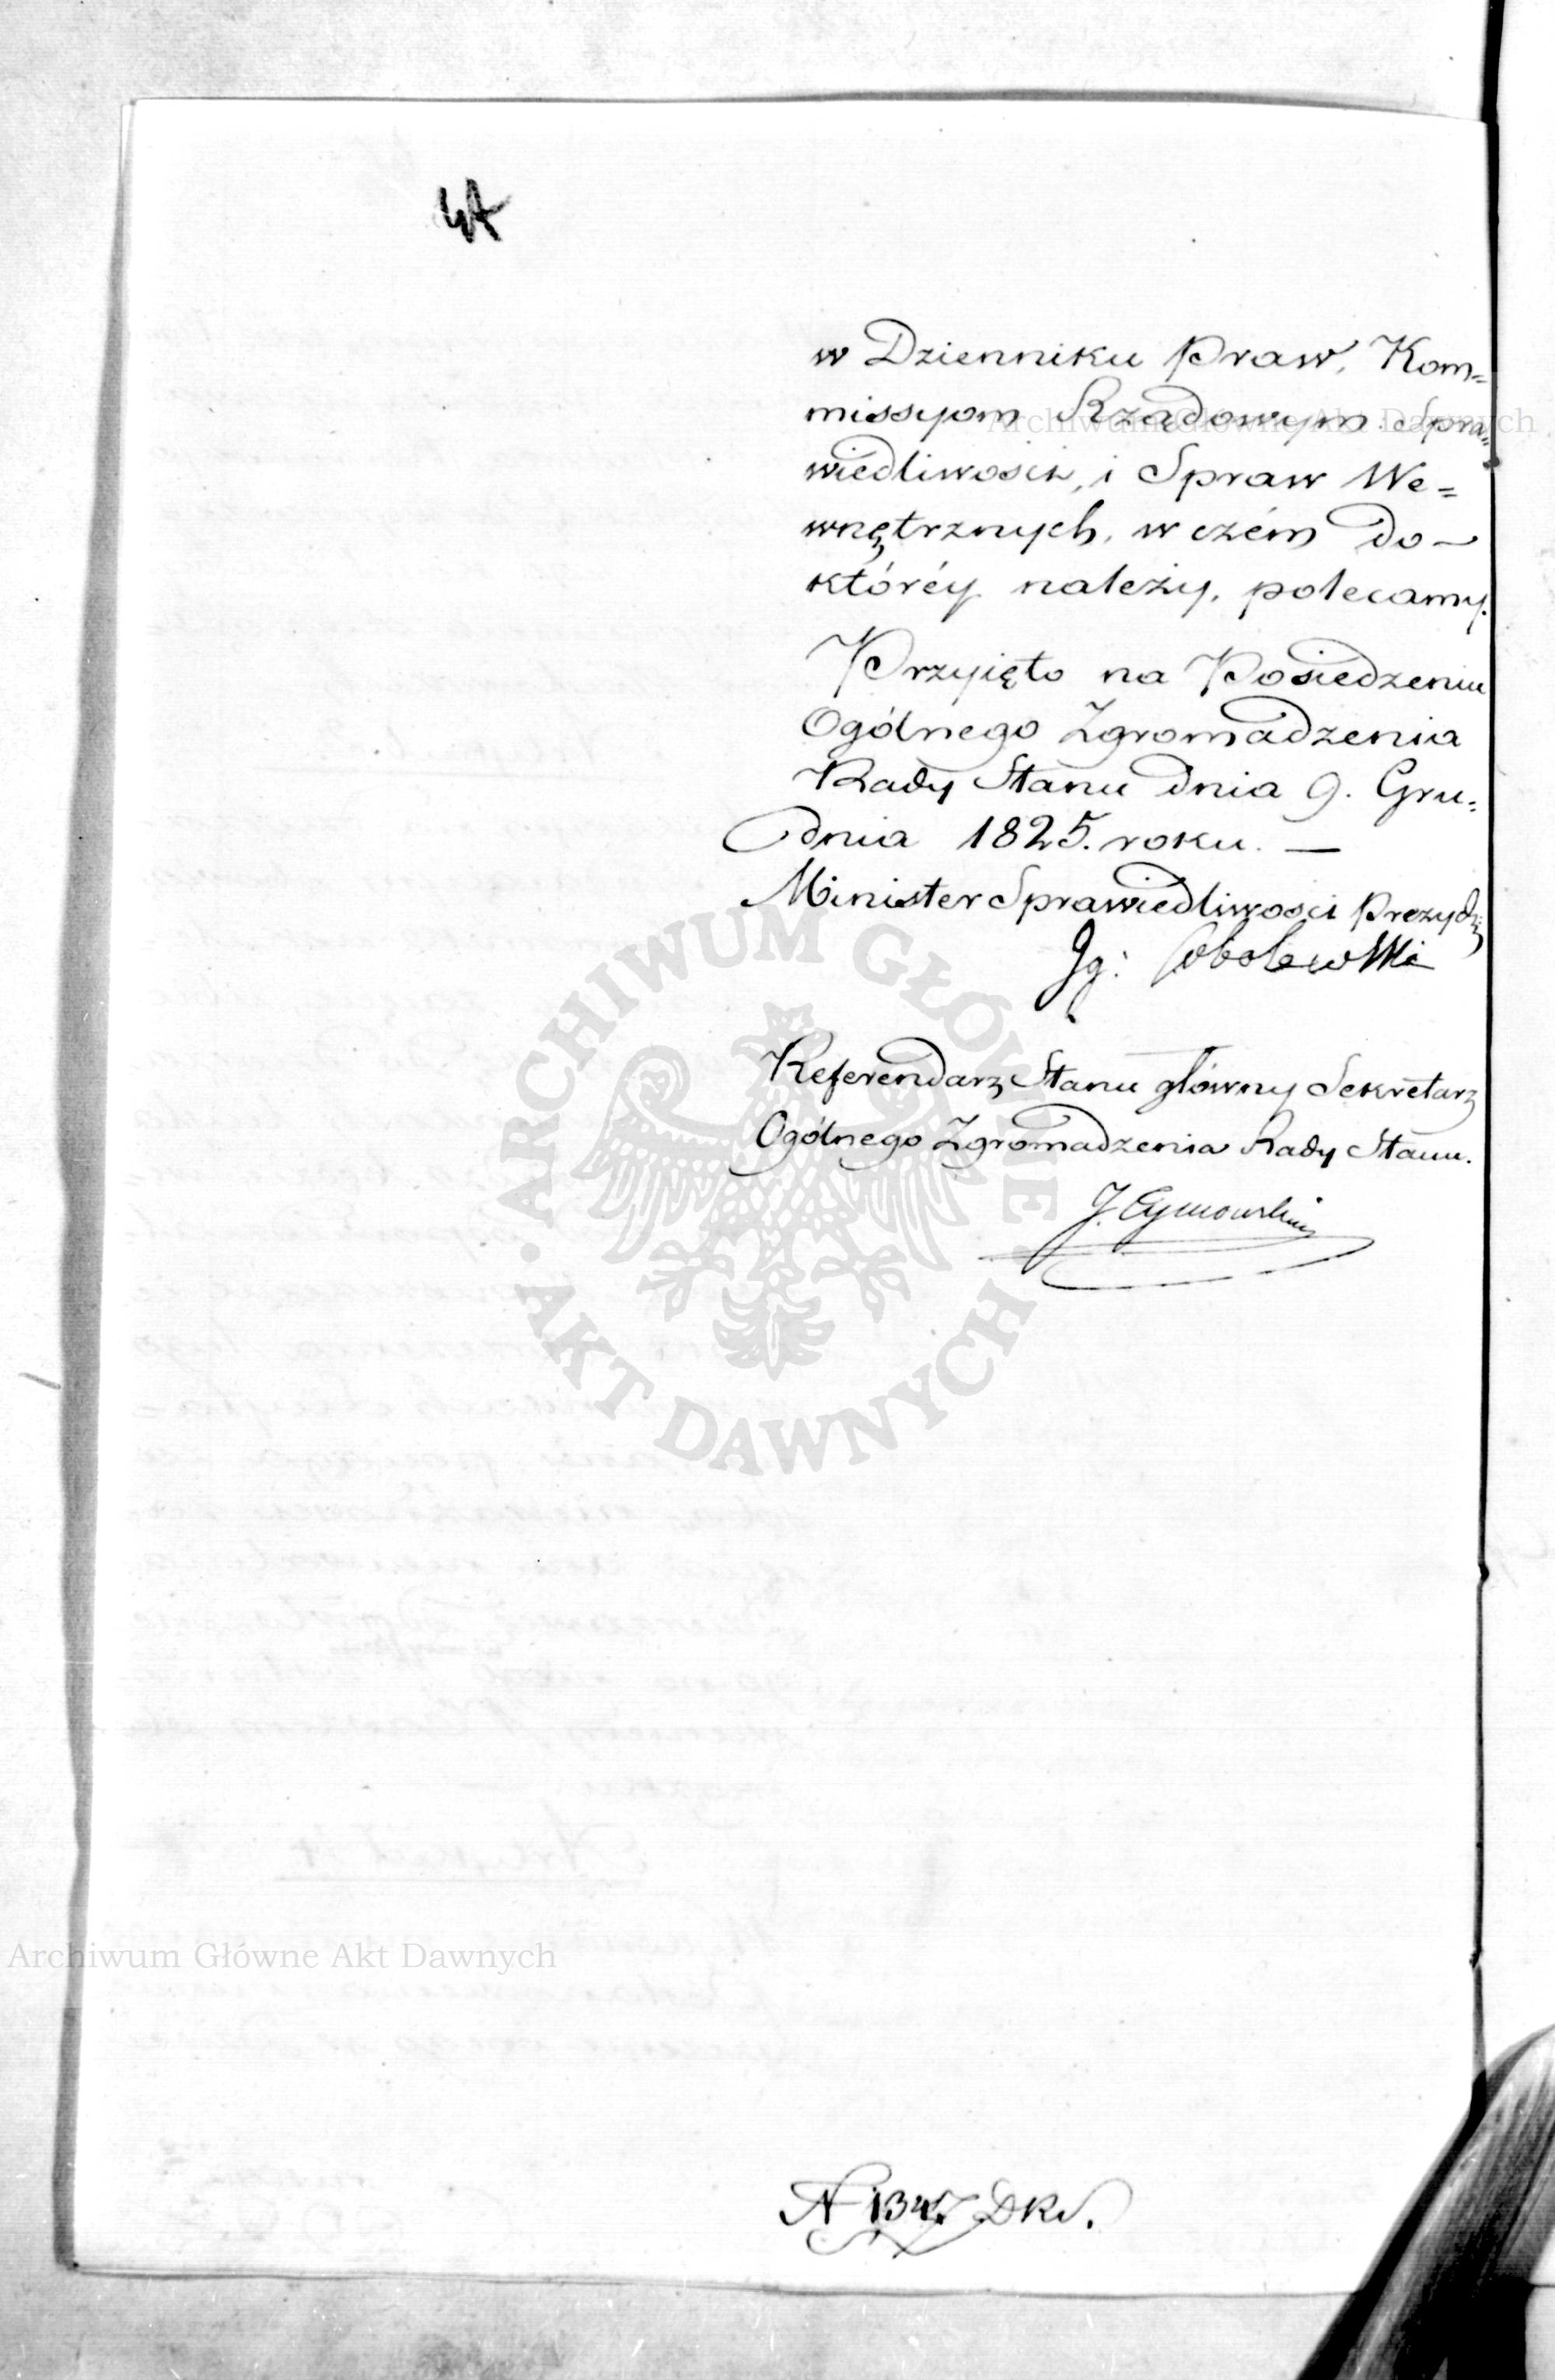 44
w Dzienniku Praw, Kom=
missyom Rządowym Spra=
wiedliwości, i Spraw We=
wnętrznych, w czém do
któréy należy, polecamy.
Przyięto na Posiedzeniu
Ogólnego Zgromadzenia
Rady Stanu dnia 9. Gru=
dnia 1825. roku. —
Minister Sprawiedliwości Prezyd:
Ig: Sobolewski
Referendarz Stanu główny Sekretarz
Ogólnego Zgromadzenia Rady Stanu.
J.
N 1347 DRS.
Archiwum Główne Akt Dawnych
Archiwum Główne Akt Dawnych
ARCHIWUM GŁÓWNE • AKT DAWNYCH •